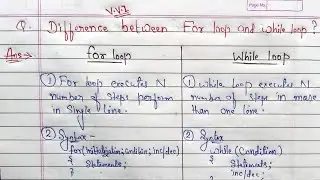 V.V.I.
Q. Difference between For loop and while loop?
Ans→
for loop
While loop
① For loop executes N
number of steps perform
in single line.
① While loop executes N
number of steps in more
than one line.
② Syntax -
for(initialization; condition; inc/dec)
{
Statements;
}
② Syntax -
while (condition)
{
Statements;
inc/dec;
}